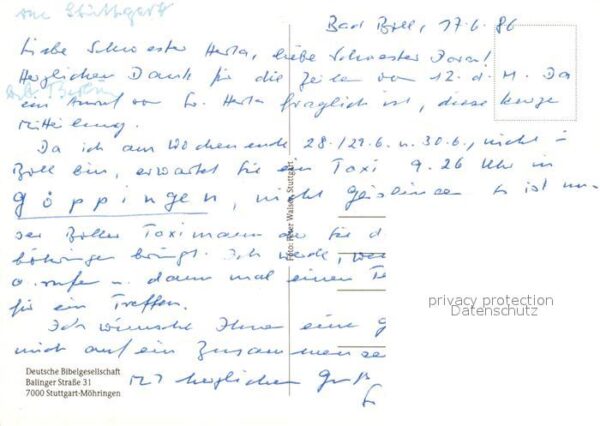 aus Stuttgart
Bad Boll, 17.6.86
Liebe Schwester Herta, liebe Schwester Dora!
Herzlichen Dank für die Zeilen vom 12. d. M. Da
ein Anruf von Sr. Herta fraglich ist, diese kurze
Mitteilung.
Da ich am Wochenende 28./29.6. u. 30.6., nicht in
Boll bin, erwartet Sie ein Taxi 9.26 Uhr in
Göppingen, nicht Geislingen. Es ist un-
ser Boller Taximann der Sie d
bringt. Ich werde,
u. dann mal einen Te
für ein Treffen.
Ich wünsche Ihnen eine g
mich auf ein Zusammense
Mit herzlichen Grüß
Foto: Peter Walser, Stuttgart
Deutsche Bibelgesellschaft
Balinger Straße 31
7000 Stuttgart-Möhringen
privacy protection
Datenschutz